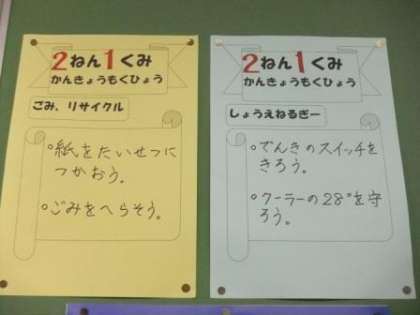 2ねん1くみ
かんきょうもくひょう
ごみ、リサイクル
°紙をたいせつに
つかおう。
°ごみをへらそう。
2ねん1くみ
かんきょうもくひょう
しょうえねるぎー
°でんきのスイッチを
きろう。
°クーラーの28°を守
ろう。